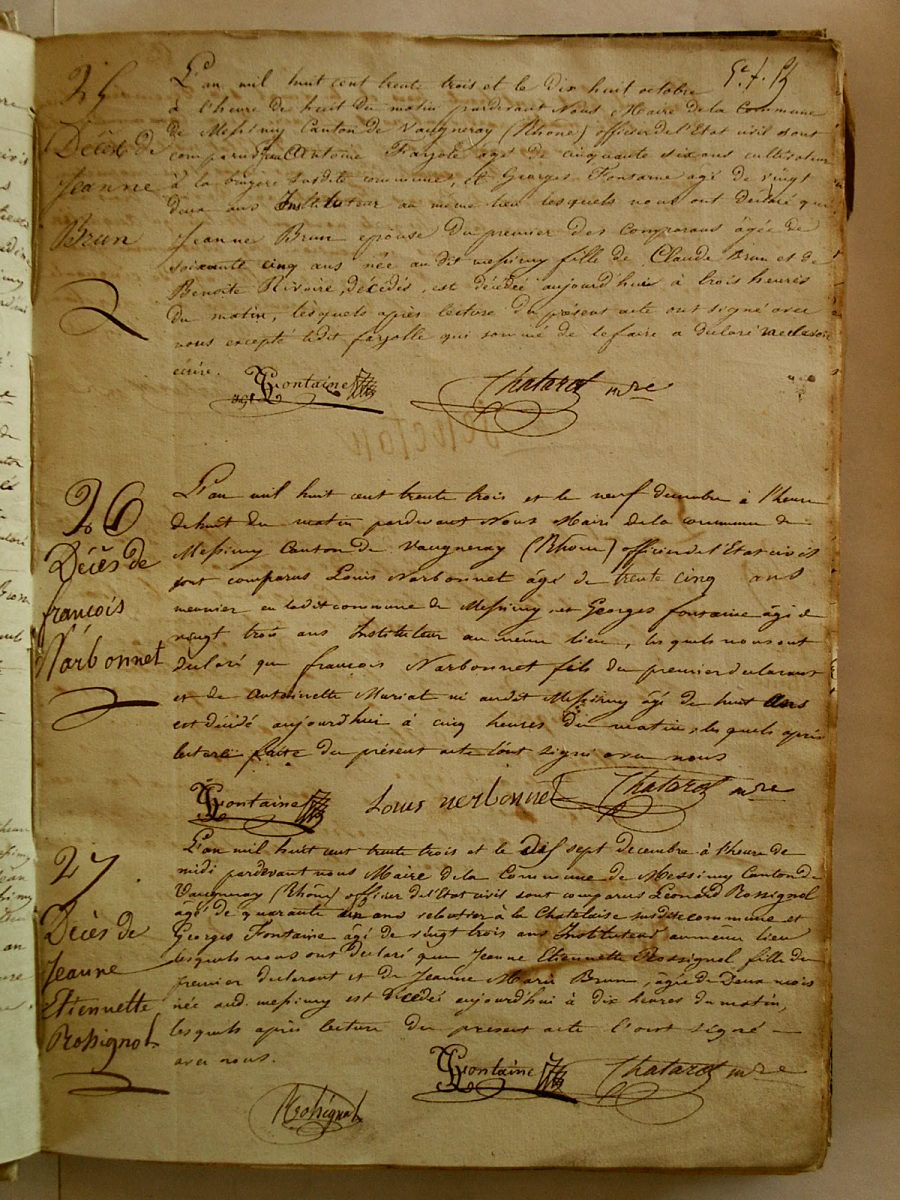 25
Décès de
Jeanne
Brun
L'an mil huit cent trente trois et le dix huit octobre
à l'heure de huit du matin pardevant Nous Maire de la Commune
de Messimy Canton de Vaugneray (Rhône) officier de l'Etat civil sont
comparus Antoine Farjole agé de cinquante six ans cultivateur
à la bruyere susdite commune, et Georges Fontaine agé de vingt
deux ans Instituteur au même lieu lesquels nous ont déclaré que
Jeanne Brun epouse du premier des comparans âgée de
soixante cinq ans née au dit messimy fille de Claude Brun et de
Benoîte Rivoire, décédés, est décédée aujourd'huis à trois heures
du matin, lesquels après lecture du présent acte ont signé avec
nous excepté ledit farjolle qui sommé de le faire a déclaré ne le savoir
écrire.
Fontaine Chatard mre
26
Décès de
françois
Narbonnet
L'an mil huit cent trente trois et le neuf décembre à l'heure
de huit du matin pardevant Nous Maire de la commune de
Messimy Canton de Vaugneray (Rhône) officier de l'Etat civil
sont comparus Louis Narbonnet âgé de trente cinq ans
meunier en ladit commune de Messimy et Georges fontaine âgé de
vingt trois ans Instituteur au même lieu, lesquels nous ont
déclaré que françois Narbonnet fils du premier déclarant
et de Antoinette Muriat né audit Messimy âgé de huit ans
est décédé aujourd'hui à cinq heures du matin, lesquels après
lecture faite du présent acte l'ont signé avec nous
Fontaine Louis nerbonnet Chatard mre
27
Décès de
Jeanne
Etiennette
Rossignol
L'an mil huit cent trente trois et le dix sept décembre à l'heure de
midi pardevant nous Maire de la Commune de Messimy Canton de
Vaugneray (Rhône) officier de l'Etat civil sont comparus Léonard Rossignol
âgé de quarante un ans à la Chatelaise susdite commune et
Georges Fontaine âgé de vingt trois ans Instituteur au même lieu
lesquels nous ont déclaré que Jeanne Etiennette Rossignol fille du
premier déclarant et de Jeanne Marie Brun, âgée de Deux mois
née aud. messimy est décédée aujourd'hui à dix heures du matin,
lesquels après lecture du present acte l'ont signé
avec nous.
Fontaine Chatard mre
Rossignol